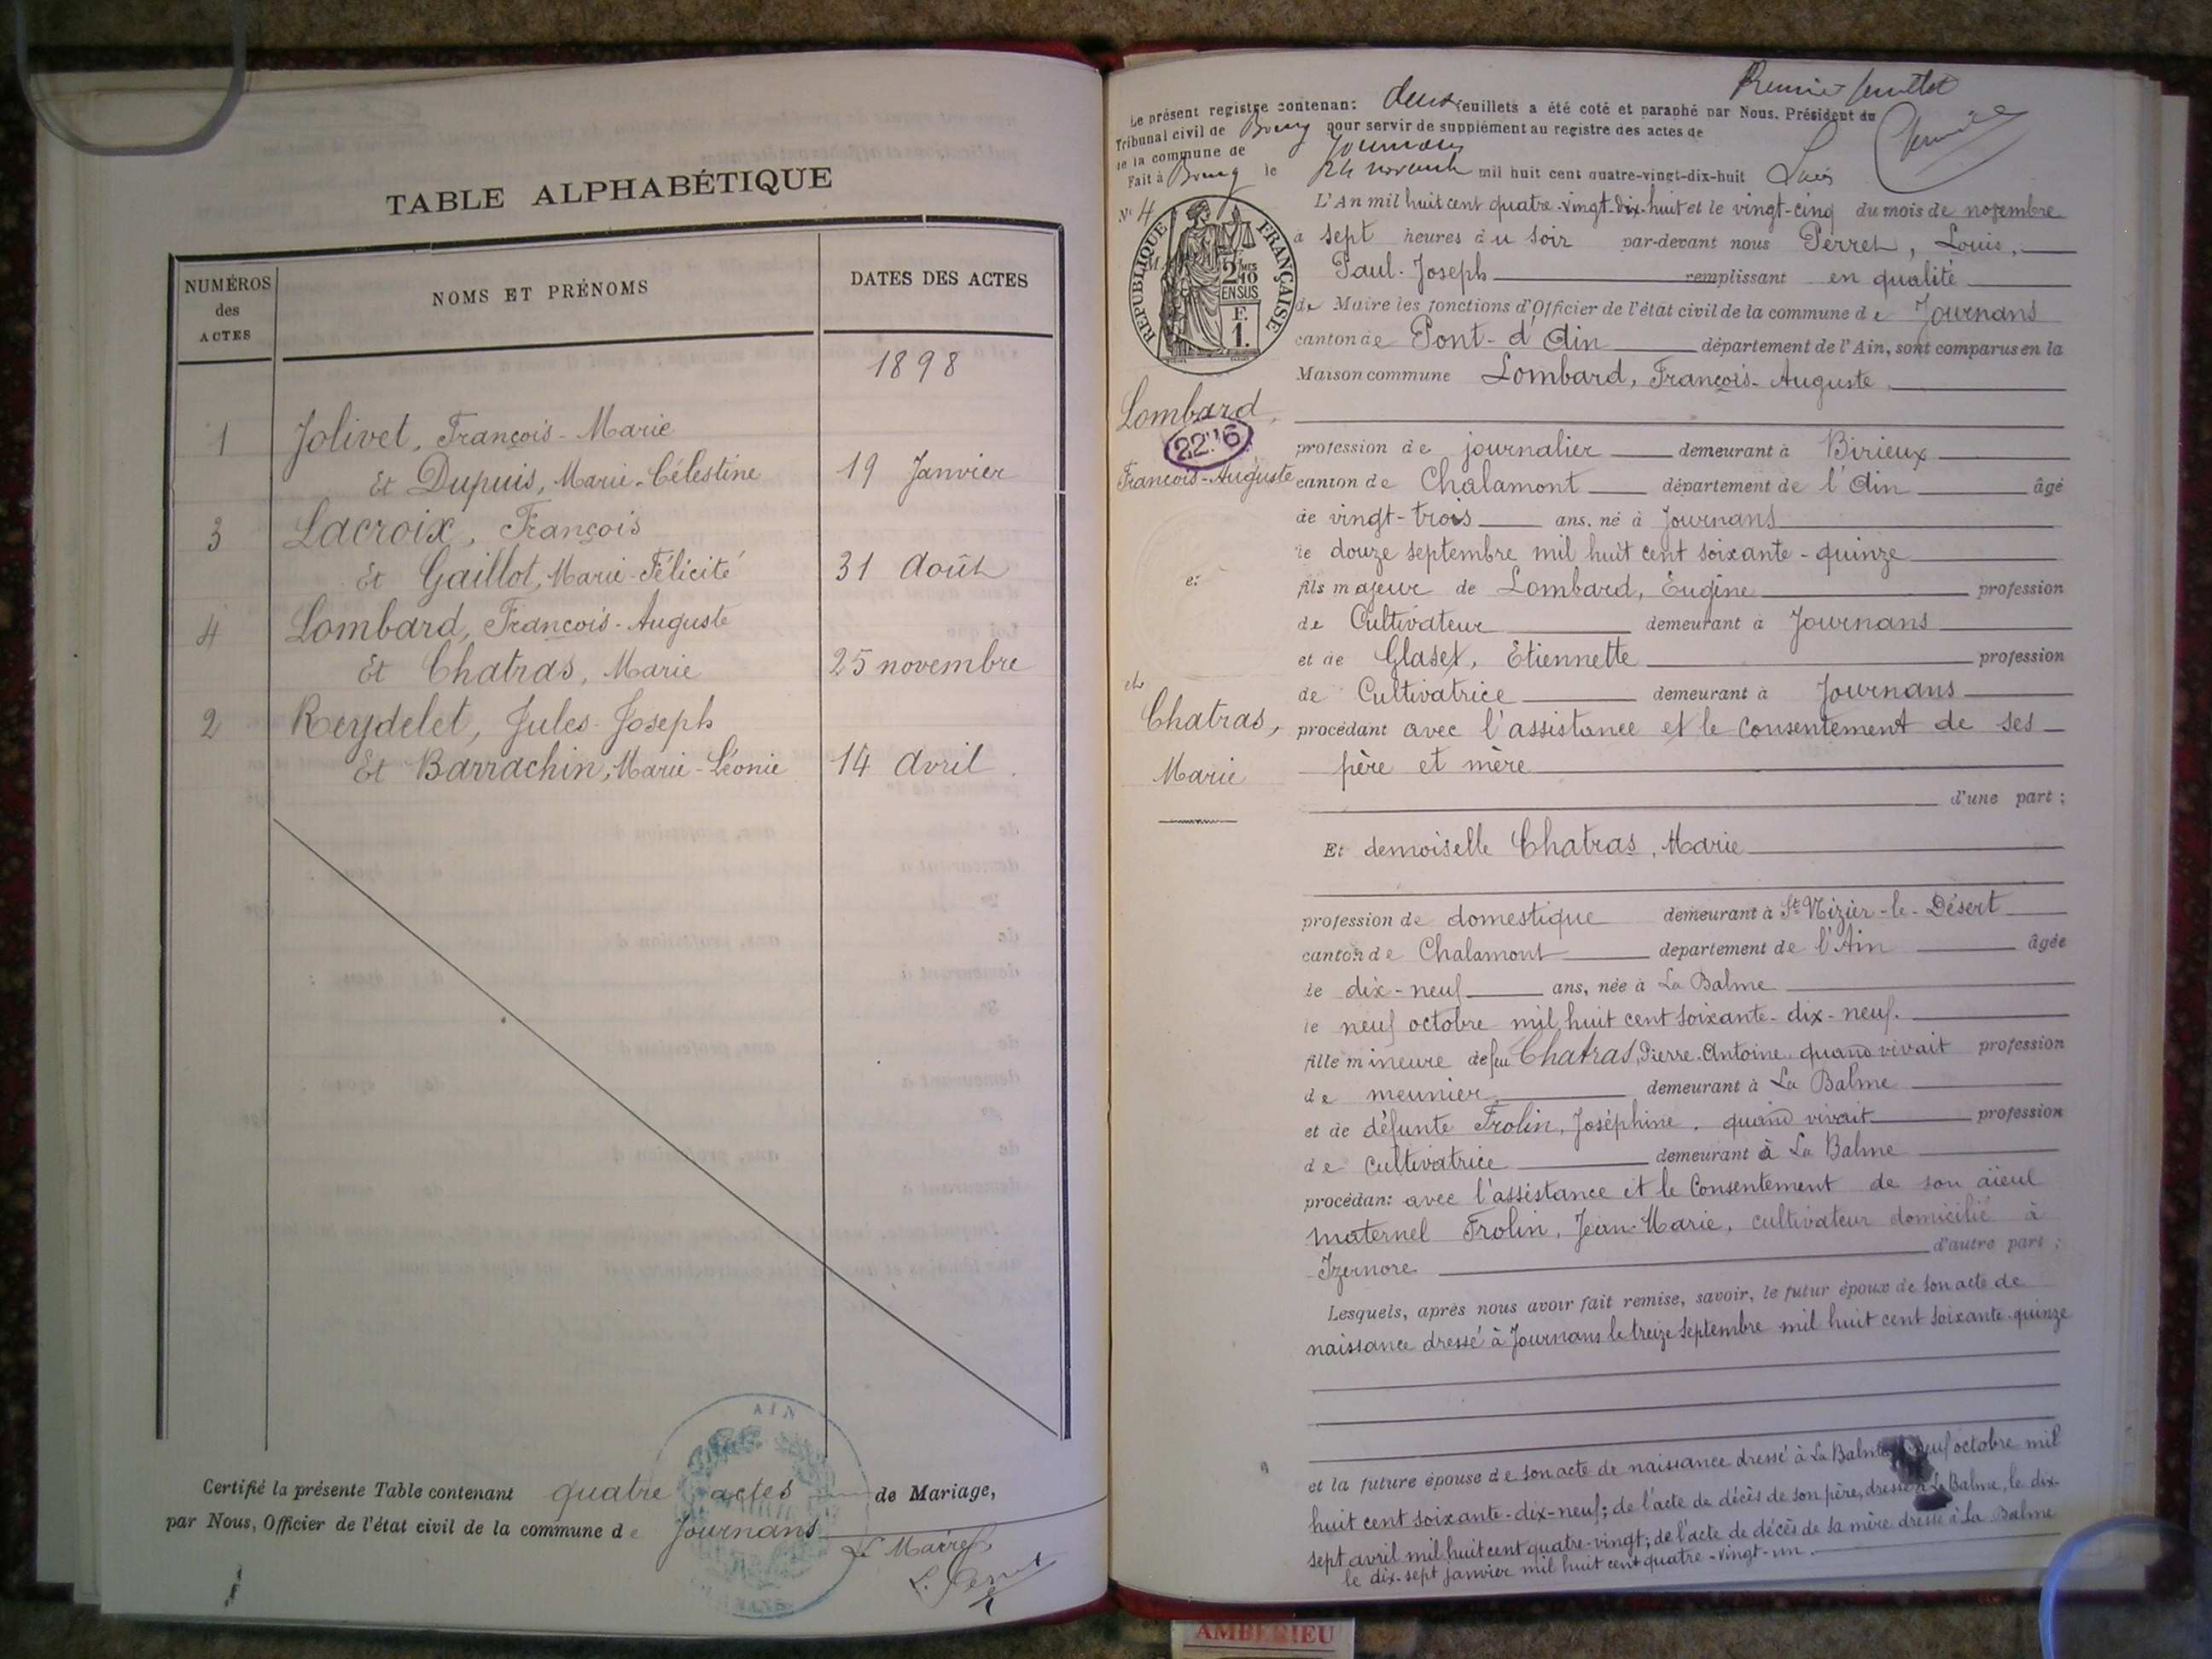 TABLE ALPHABÉTIQUE
NUMÉROS
des
ACTES
NOMS ET PRÉNOMS
DATES DES ACTES
1898
1 Jolivet, François-Marie
Et Dupuis, Marie-Célestine 19 Janvier
3 Lacroix, François
Et Gaillot, Marie-Félicité 31 Août
4 Lombard, François-Auguste
Et Chatras, Marie 25 novembre
2 Reydelet, Jules-Joseph
Et Barrachin, Marie-Léonie 14 Avril.
AIN
Certifié la présente Table contenant quatre actes de Mariage,
par Nous, Officier de l'état civil de la commune de Journans
Le Maire
L. Perret
Premier feuillet
Le présent registre contenant deux feuillets a été coté et paraphé par Nous. Président du
Tribunal civil de Bourg pour servir de supplément au registre des actes de
de la commune de Journans
Fait à Bourg le 24 novembre mil huit cent quatre-vingt-dix-huit
No 4
RÉPUBLIQUE FRANÇAISE
2 10MES
EN SUS
F.
1.
L'An mil huit cent quatre-vingt-dix-huit et le vingt-cinq du mois de novembre
à sept heures du soir par-devant nous Perret, Louis,
Paul-Joseph remplissant en qualité
de Maire les fonctions d'Officier de l'état civil de la commune de Journans
canton de Pont-d'Ain département de l'Ain, sont comparus en la
Maison commune Lombard, François-Auguste
Lombard,
22"6
François-Auguste
et
et
Chatras,
Marie
profession de journalier demeurant à Birieux
canton de Chalamont département de l'Ain âgé
de vingt-trois ans, né à Journans
le douze septembre mil huit cent soixante-quinze
fils majeur de Lombard, Eugène profession
de Cultivateur demeurant à Journans
et de Etiennette profession
de Cultivatrice demeurant à Journans
procédant avec l'assistance et le consentement de ses
père et mère
d'une part ;
Et demoiselle Chatras, Marie
profession de domestique demeurant à St Nizier-le-Désert
canton de Chalamont département de l'Ain âgée
de dix-neuf ans, née à La Balme
le neuf octobre mil huit cent soixante-dix-neuf.
fille mineure de feu Chatras, Pierre-Antoine, quand vivait profession
de meunier, demeurant à La Balme
et de défunte Frolin, Joséphine, quand vivait profession
de cultivatrice demeurant à La Balme
procédant avec l'assistance et le Consentement de son aïeul
maternel Frolin, Jean-Marie, cultivateur domicilié à
Izernore d'autre part ;
Lesquels, après nous avoir fait remise, savoir, le futur époux de son acte de
naissance dressé à Journans le treize septembre mil huit cent soixante-quinze
et la future épouse de son acte de naissance dressé à La Balme neuf octobre mil
huit cent soixante-dix-neuf; de l'acte de décès de son père, dressé à La Balme, le dix-
sept avril mil huit cent quatre-vingt; de l'acte de décès de sa mère dressé à La Balme
le dix-sept janvier mil huit cent quatre-vingt-un.
AMBERIEU